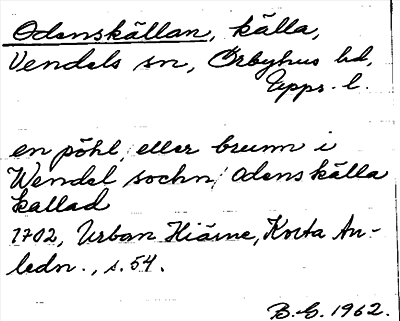 Odenskällan, källa,
Vendels sn, Örbyhus hd,
Upps. l.
en pöhl eller brunn i
Wendel sochn, Odens källa
kallad
1702, Urban Hiärne, Korta An-
ledn., s. 54.
B.G. 1962.